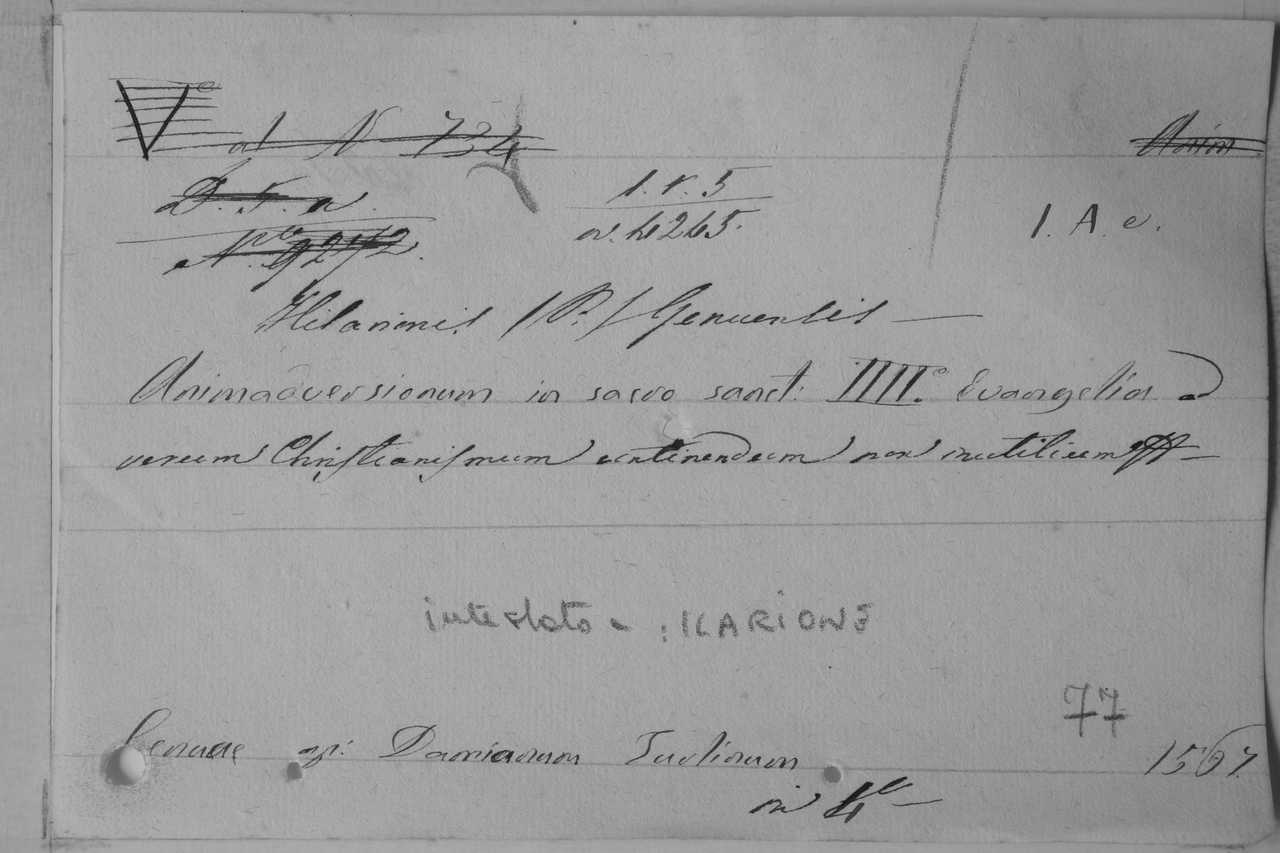 V.e al N 734
D. N. a.
N. 9272.
1. V. 5
a. 4245.
1. A. e.
Hilarionis /P./ Genuensis —
Animadversionum in sacro sanct: IIII.e Evangelia ad
verum Christianismum continendum non inutilium —
intestato a : ILARIONE
77
Genuae ap: Damianum Turlinum 1567.
in 4.e —